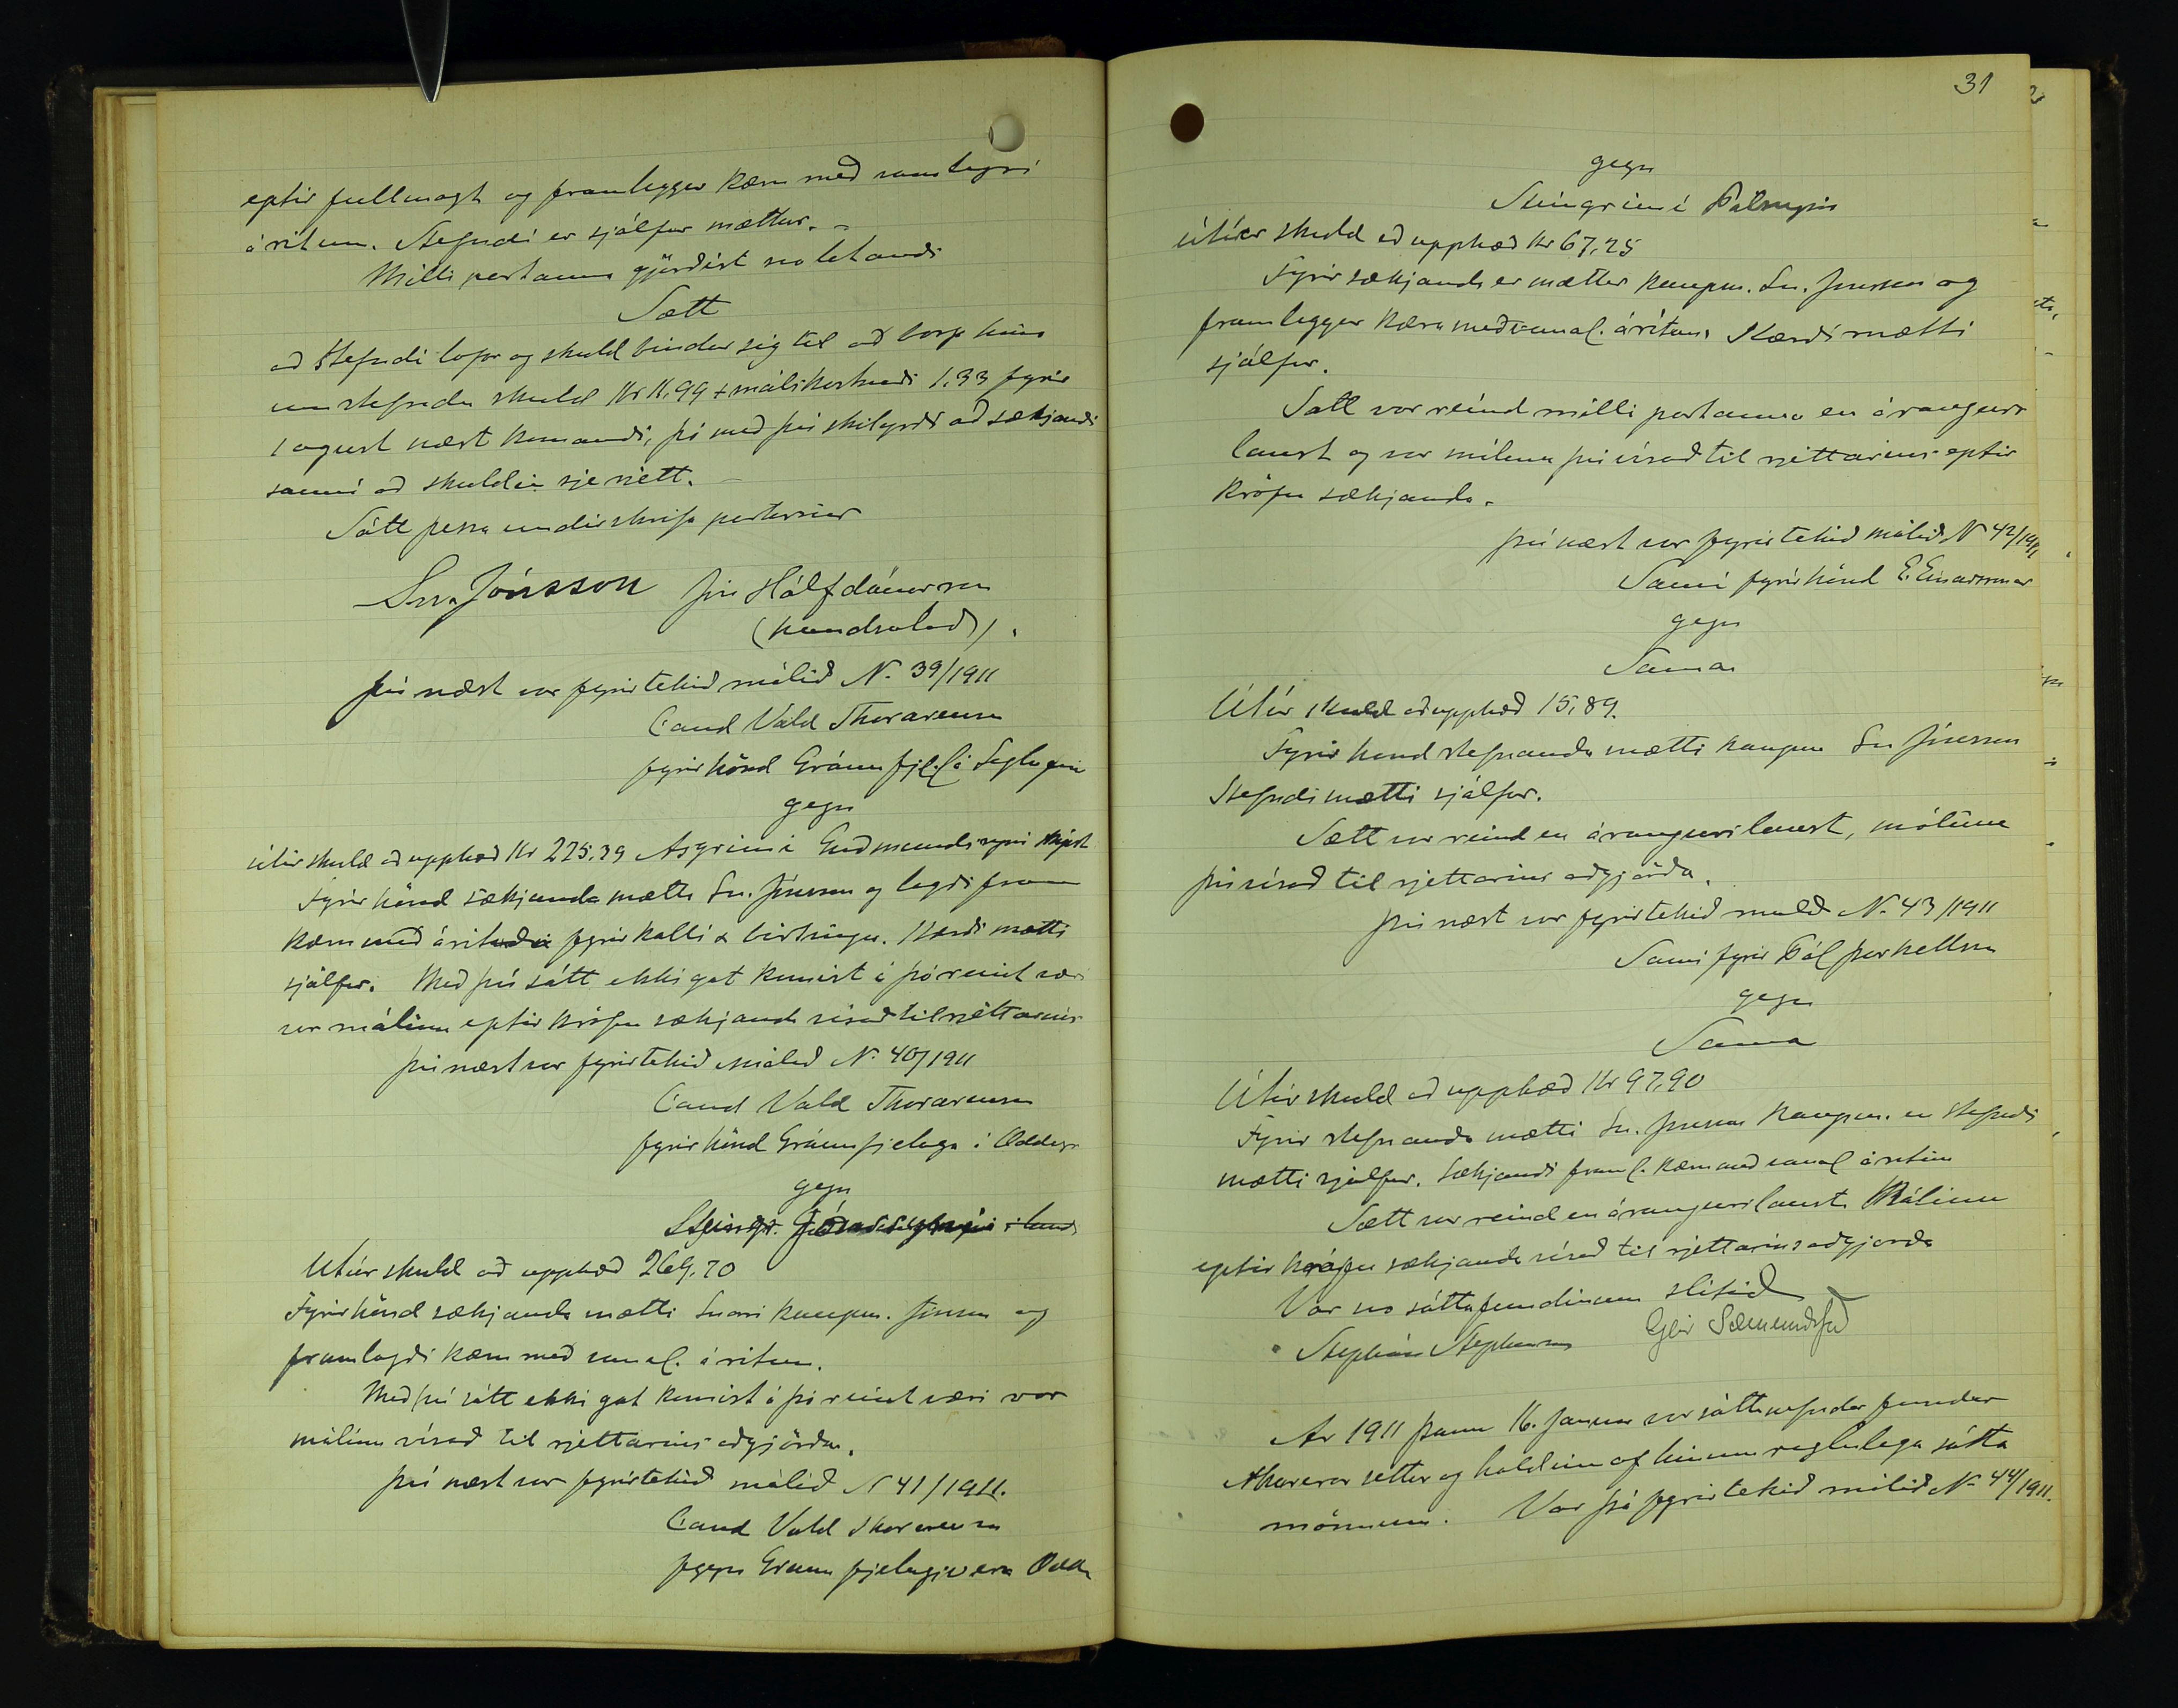 eptir fullmagt og framleggur kæru með vanlegri
áritun. Stefndi er sjálfur mættur. -
Milli partanna gjörðist svolátandi
Sætt
að Stefndi lofar og skuldbindur sig til að borga hina
umstefndu skuld Kr 11,99 + málskostnaði 1,33 fyrir
1 agust næst komandi, þó með því skilyrði að sækjandi
sanni að skuldin sje rjett. -
Sátt þessa undirskrifa partarnir
Sn. Jónsson Jón Hálfdánarson
(handsalað).
Því næst var fyrirtekið málið N. 39/1911
Cand Vald Thorarensen
fyrir hönd Gránufjel. á Siglufirði
gegn
útúr skuld að upphæð Kr 225,39 Asgrími Guðmundssyni
Fyrir hönd sækjanda mætti Sn. Jónsson og lagði fram
kæru með árituðu fyrirkalli & birtingu. Kærði mætti
sjálfur. Með því sátt ekki gat komist á þó reint væri
var málinu eptir kröfu sækjanda vísað til rjettarins
Því næst var fyrirtekið málið N. 40/1911
Cand Vald Thorarensen
fyrir hönd Gránufjelags á Oddeyri
gegn
Útúr skuld að upphæð 269,70
Fyrir hönd sækjanda mætti Snorri kaupm. Jónsson og
framlagði kæru með vanal. áritun.
Með því sátt ekki gat komist á þó reint væri var
málinu vísað til rjettarins aðgjörða.
Því næst var fyrirtekið málið N 41/1911.
Cand Vald Thorarensen
31
gegn
Steingrími Pálssyni
útúr skuld að upphæð Kr 67,25
Fyrir sækjanda er mættur kaupm. Sn. Jónsson og
framleggur kæru með vanal. áritun. Kærði mætti
sjálfur.
Sátt var reind milli partanna en árangurs
laust og var málinu því vísað til rjettarins eptir
kröfu sækjanda.
Því næst var fyrirtekið málið N 42/1911
Sami fyrir hönd E. Einarssonar
gegn
Sama
Útúr skuld að upphæð 15,89.
Fyrir hönd stefnanda mætti kaupm Sn Jónsson
Stefndi mætti sjálfur.
Sætt var reind en árangurslaust, málinu
því vísað til rjettarins aðgjörða.
Því næst var fyrirtekið málið N. 43/1911
Sami fyrir Pál Þorkellsson
gegn
Sama
Útúr skuld að upphæð Kr 97,90
Fyrir stefnanda mætti Sn. Jónsson kaupm. en stefndi
mætti sjálfur. Sækjandi framl. kæru með vanal áritun
Sætt var reind en árangurslaust. Málinu
eptir kröfu sækjanda vísað til rjettarins aðgjörða
Var svo sáttafundinum slitið
Stephán Stephensen Geir Sæmundsson
Ar 1911 þann 16. Januar var sáttanefndar fundur
Akureyrar settur og haldinn af hinum reglulega sátta
mönnum. Var þá fyrirtekið málið N. 44/1911.